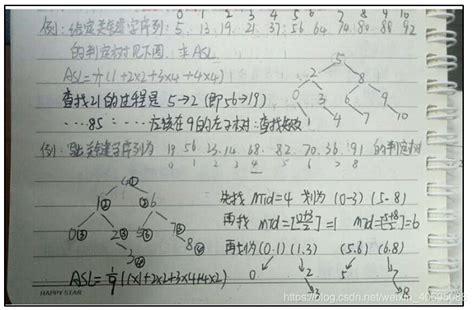 0 1 2 3 4 5 6 7 8 9 10
例：给定关键字序列：5. 13. 19. 21. 37. 56 64 74 80 88 92
的判定树见下图. 求ASL
ASL=(1+2×2+3×4+4×4)
查找21的过程是 5→2 (即56→19)
5
2 8
0 3 6 9
1 4 7 10
…85：……应接在9的左子树：查找失败！
例：关键字序列为 19 56 23. 14 68. 82. 70. 36. 91 的判定树
0 1 2 3 4 5 6 7 8
4①
1② 6
0③ 2③ 5③ 7③
3④ 8④
先找 mid=4 划为 (0-3) (5-8)
再找 mid=[0+3/2]=1 mid=[5+8/2]=6
再找 (0.1) (1.3) (5.6) (6.8)
0 2 5 7
3 8
ASL=1/9(1×1+2×2+3×4+4×2)
HAPPY STAR